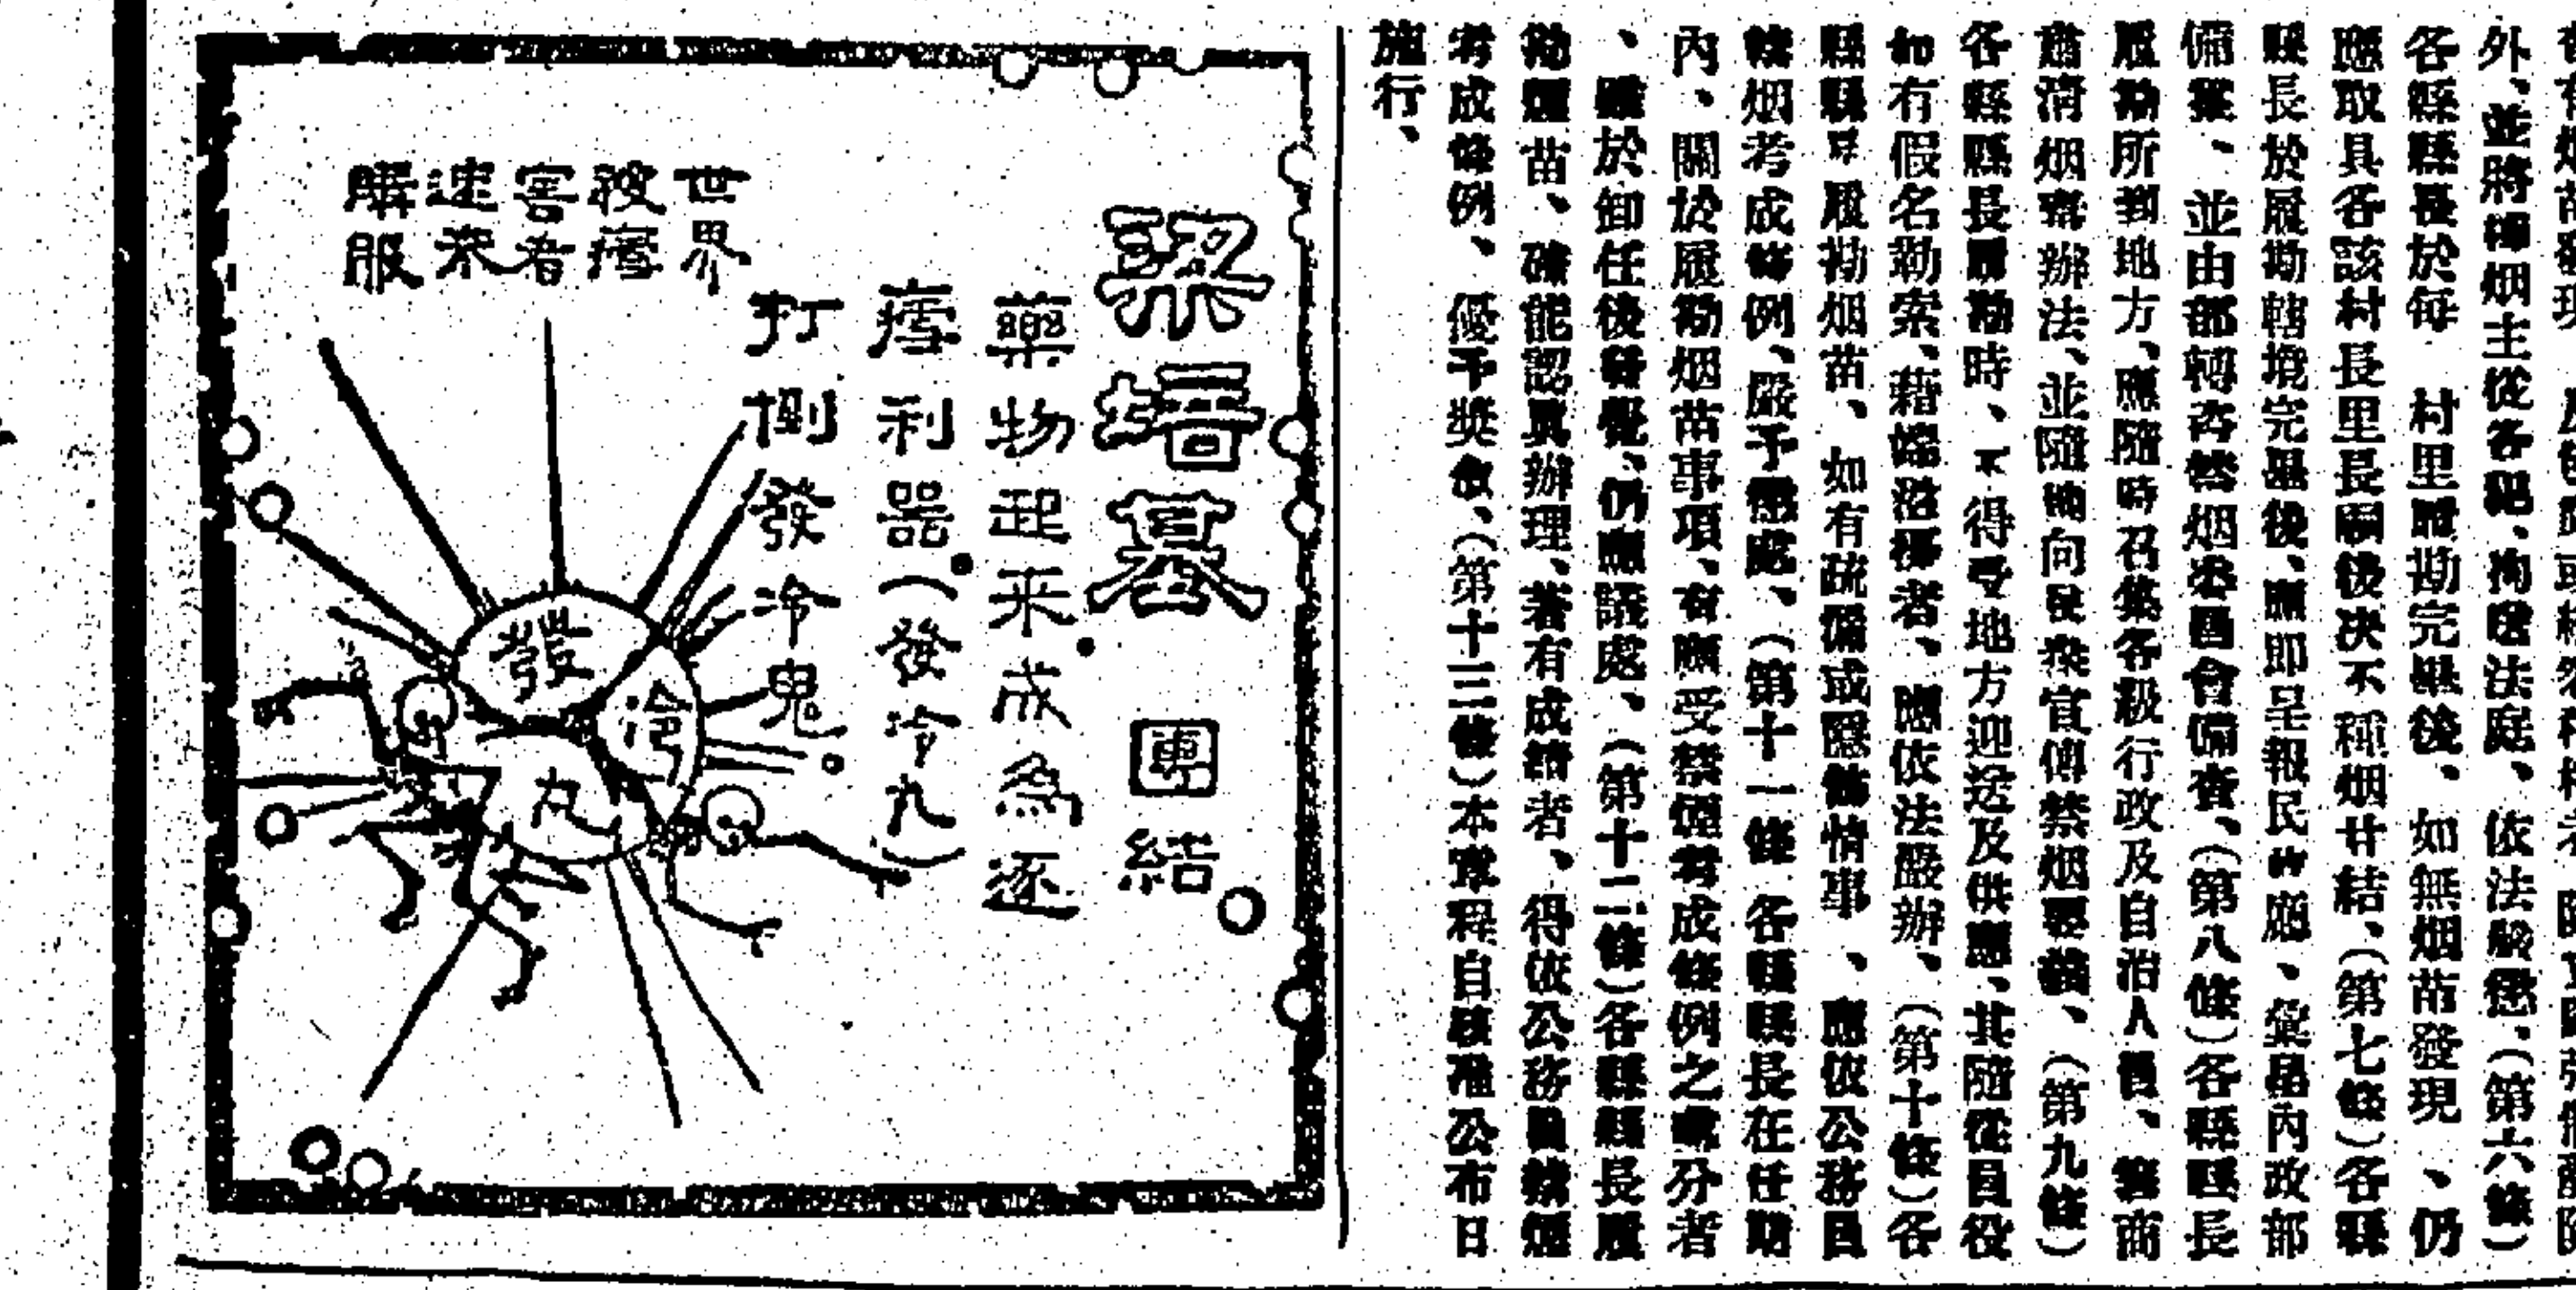 外、並將種烟主從各犯、拘送法庭、依法嚴懲、（第六條）
各縣縣長於每　村里履勘完畢後、如無烟苗發現　、仍
應取具各該村長里長嗣後决不種烟甘結、（第七條）各縣
縣長於履勘轄境完畢後、應即呈報民政廳、彙呈內政部
備案、並由部轉咨禁烟委員會備查、（第八條）各縣縣長
履勘所到地方、應隨時召集各級行政及自治人員、籌商
肅清烟毒辦法、並隨時向民衆宣傳禁烟要義、（第九條）
各縣縣長履勘時、不得受地方迎送及供應、其隨從員役
如有假名勒索、藉端滋擾者、應依法嚴辦、（第十條）各
縣縣長履勘烟苗、如有疏漏或隱飾情事、應依公務員
禁烟考成條例、嚴予懲處、（第十一條　各縣縣長在任期
內、關於履勘烟苗事項、有應受禁烟考成條例之處分者
、雖於卸任後發覺、仍應議處、（第十二條）各縣縣長履
勘烟苗、確能認眞辦理、著有成績者、得依公務員禁烟
考成條例、優予獎叙、（第十三條）本章程自核准公布日
施行、
梁培基　團結
藥物起来成為逐
瘧利器（發冷丸）
打倒發冷鬼。
世界
被瘧
害者
速来
購服
發
冷
丸